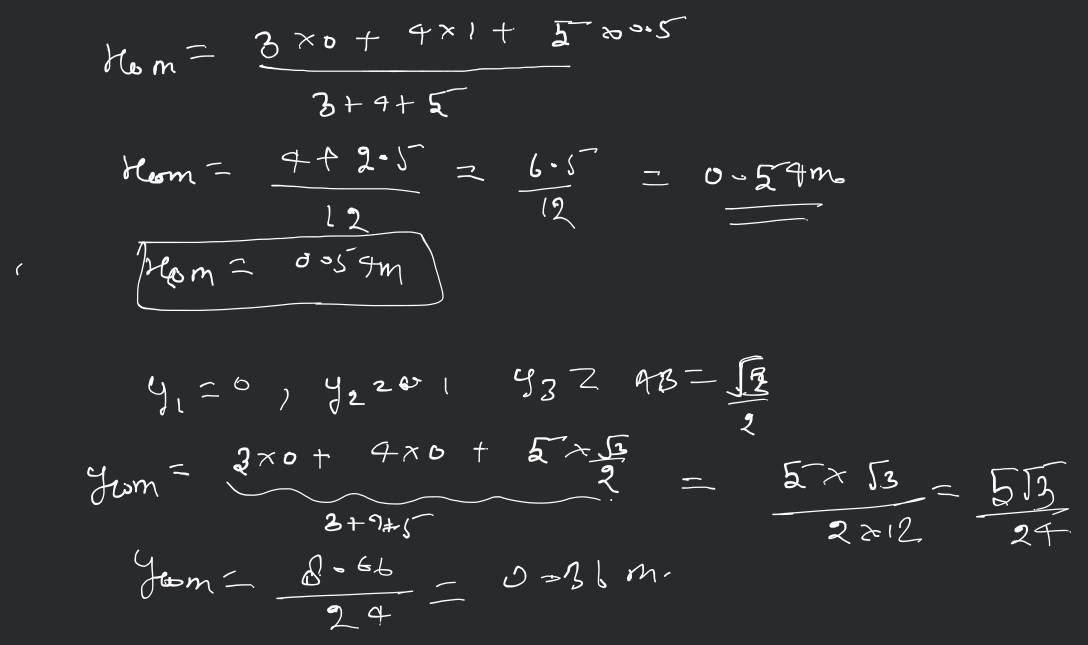 Xcom = 3 × 0 + 4 × 1 + 5 × 0.5
3 + 4 + 5
Xcom = 4 + 2.5 / 12 = 6.5 / 12 = 0.54m
Xcom = 0.54m
y₁ = 0 , y₂ = 0 , y₃ = AB = √3 / 2
Ycom = 3×0 + 4×0 + 5 × √3/2 = 5 × √3 / 2×12 = 5√3 / 24
3 + 4 + 5
Ycom = 8.66 / 24 = 0.36 m.